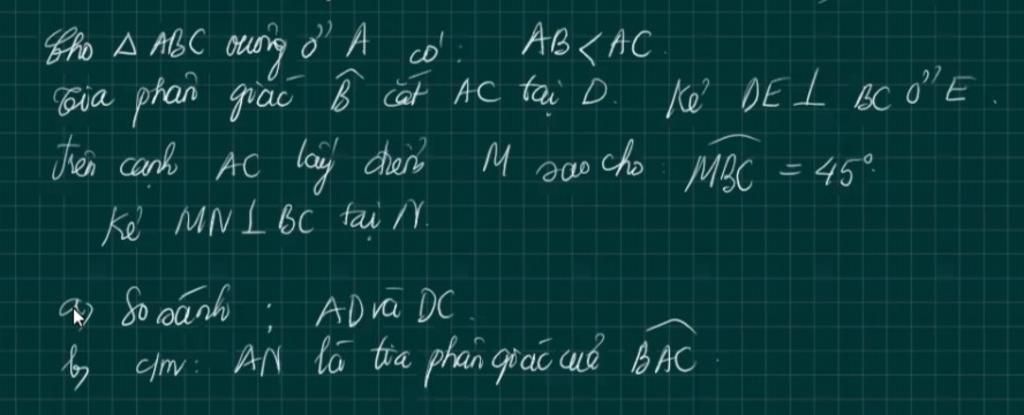 Cho △ ABC vuông ở A có: AB < AC.
Tia phân giác B̂ cắt AC tại D. Kẻ DE ⊥ BC ở E.
Trên cạnh AC lấy điểm M sao cho: \widehat{MBC} = 45°.
Kẻ MN ⊥ BC tại N.
a) So sánh: AD và DC.
b) c/m: AN là tia phân giác của \widehat{BAC}.